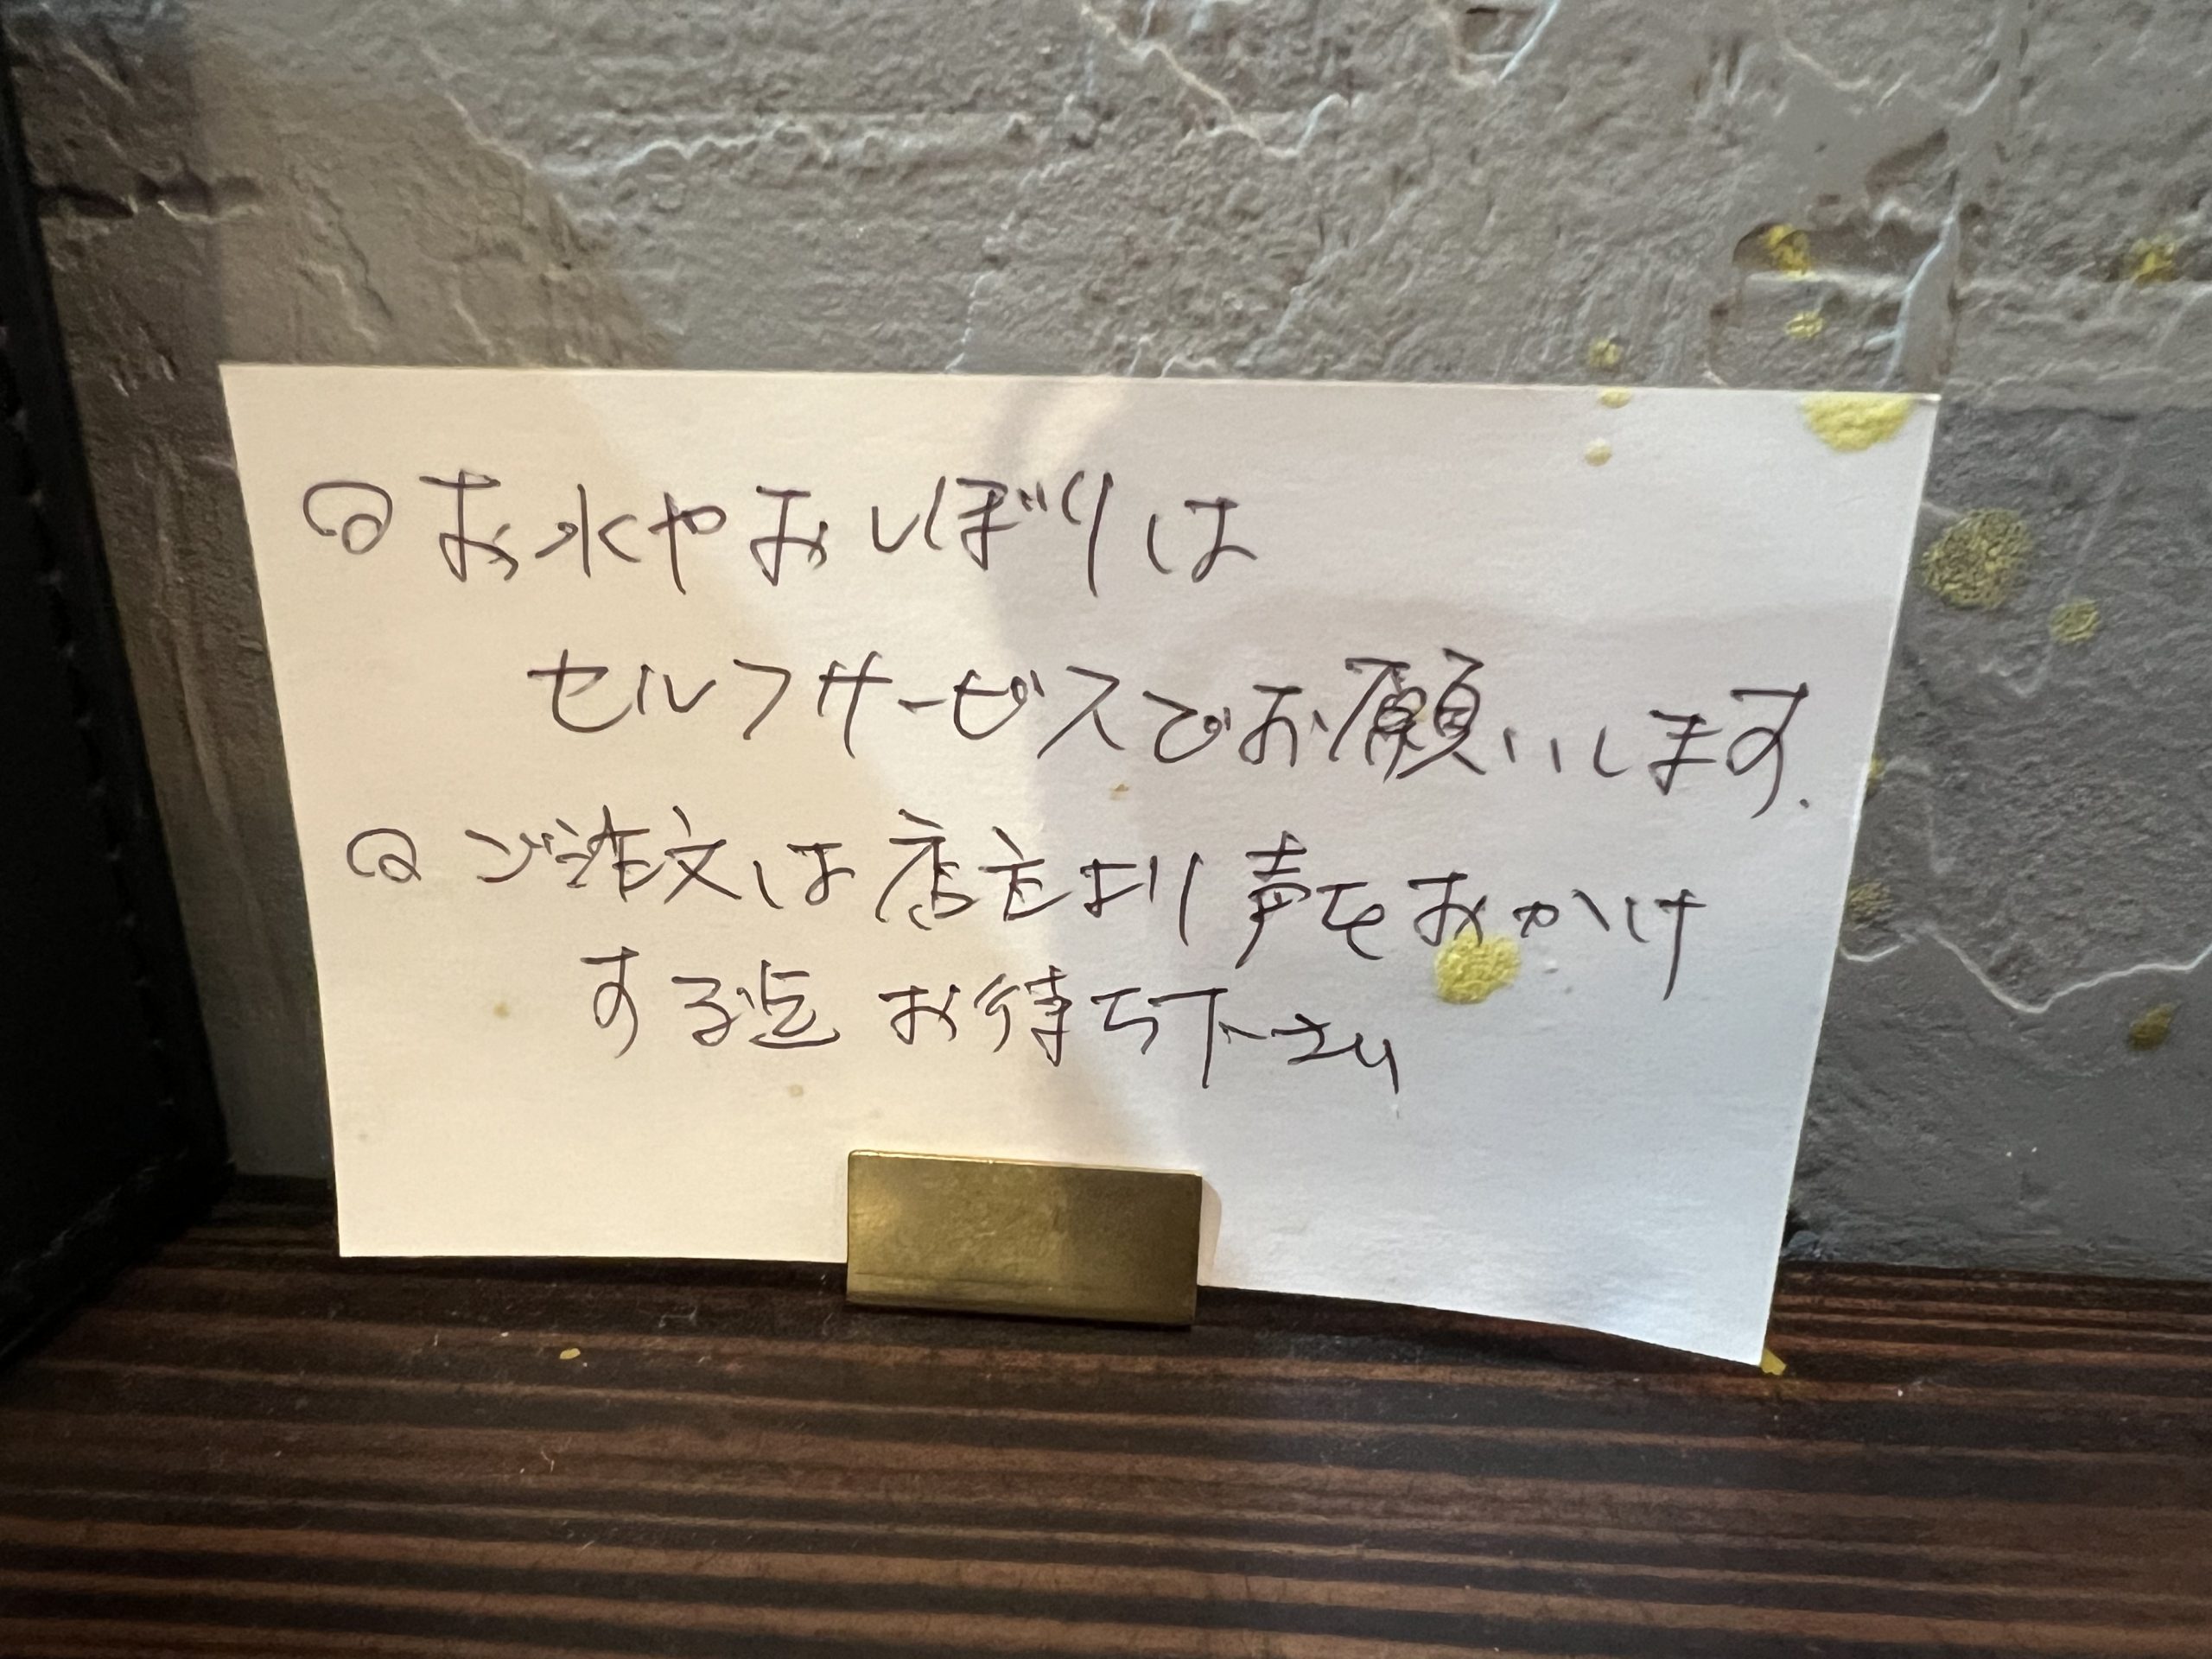 ◎お水やおしぼりは
セルフサービスでお願いします.
◎ご注文は店主より声をおかけ
する迄お待ち下さい